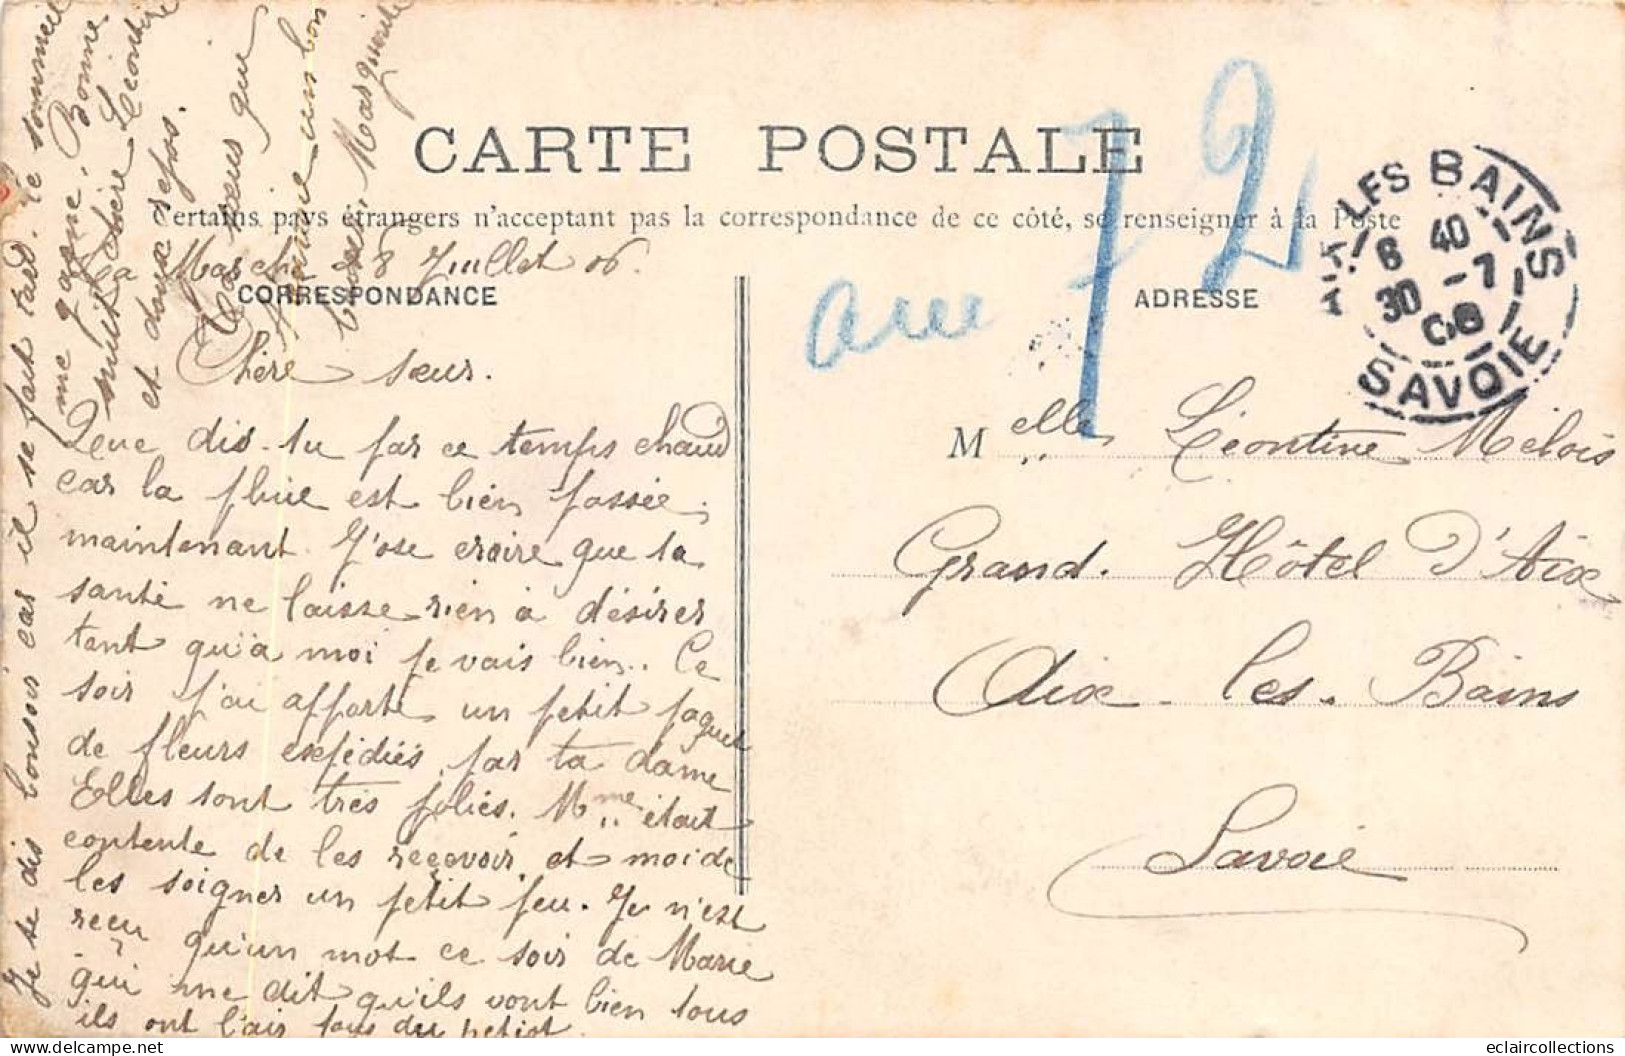 CARTE POSTALE
Certains pays étrangers n'acceptant pas la correspondance de ce côté, se renseigner à la Poste
La Marche 28 Juillet 06.
CORRESPONDANCE
Chère sœur.
Que dis-tu par ce temps chaud
car la pluie est bien passée
maintenant. J'ose croire que ta
santé ne laisse rien à désirer
tant qu'à moi je vais bien.. Ce
soir j'ai apporté un petit paquet
de fleurs expédiés par ta dame
Elles sont très jolies. Mme était
contente de les reçevoir et moi de
les soigner un petit peu. Je n'est
reçu qu'un mot ce soir de Marie
qui me dit qu'ils vont bien tous
ils ont l'air fous du petiot.
Je te dis bonsoir car il se fait tard. le sommeil
me gagne. Bonne
nuit chère Léontine
et doux repos.
Ta sœur que
t'aime un bon
baiser Marguerite
ADRESSE
Melle Léontine Melois
Grand. Hôtel D'Aix
Aix-les-Bains
Savoie
72
AIX-LES BAINS
6 40
30 -7
06
SAVOIE
eclaircollections